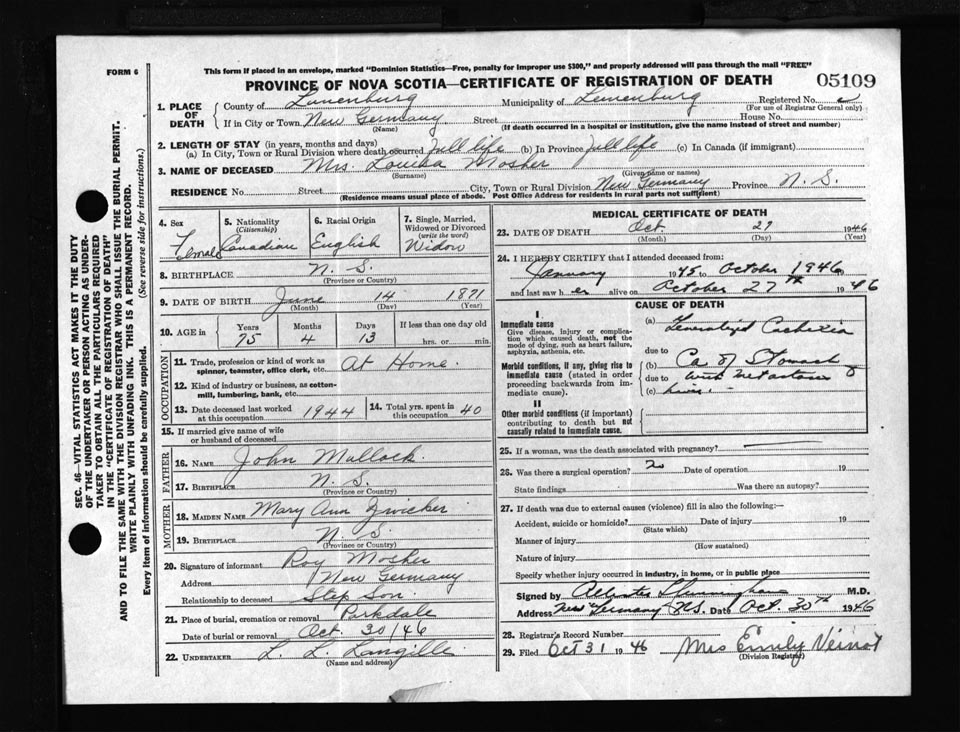 FORM 6
This form if placed in an envelope, marked "Dominion Statistics—Free, penalty for improper use $300," and properly addressed will pass through the mail "FREE"
PROVINCE OF NOVA SCOTIA—CERTIFICATE OF REGISTRATION OF DEATH
05109
1. PLACE OF DEATH
County of Lunenburg Municipality of Lunenburg Registered No.
(For use of Registrar General only)
If in City or Town New Germany Street House No.
(Name) (If death occurred in a hospital or institution, give the name instead of street and number)
2. LENGTH OF STAY (in years, months and days)
(a) In City, Town or Rural Division where death occurred full life (b) In Province full life (c) In Canada (if immigrant)
3. NAME OF DECEASED Mrs. Mosher
(Surname) (Given name or names)
RESIDENCE No. Street City, Town or Rural Division New Germany Province N. S.
(Residence means usual place of abode. Post Office Address for residents in rural parts not sufficient)
4. Sex Female
5. Nationality (Citizenship) Canadian
6. Racial Origin English
7. Single, Married, Widowed or Divorced (write the word) Widow
8. BIRTHPLACE N. S.
(Province or Country)
9. DATE OF BIRTH June 14 1871
(Month) (Day) (Year)
10. AGE in Years Months Days If less than one day old
75 4 13 hrs. or min.
OCCUPATION
11. Trade, profession or kind of work as spinner, teamster, office clerk, etc. At Home.
12. Kind of industry or business, as cotton-mill, lumbering, bank, etc.
13. Date deceased last worked at this occupation 1944
14. Total yrs. spent in this occupation 40
15. If married give name of wife or husband of deceased
FATHER
16. NAME John Mullock
17. BIRTHPLACE N. S.
(Province or Country)
MOTHER
18. MAIDEN NAME Mary Ann Zwicker
19. BIRTHPLACE N. S.
(Province or Country)
20. Signature of informant Roy Mosher
Address New Germany
Relationship to deceased Step Son.
21. Place of burial, cremation or removal Parkdale
Date of burial or removal Oct. 30/46
22. UNDERTAKER L. L. Langille
(Name and address)
MEDICAL CERTIFICATE OF DEATH
23. DATE OF DEATH Oct. 27 1946
(Month) (Day) (Year)
24. I HEREBY CERTIFY that I attended deceased from:
January 1945 to October 1946
and last saw h er alive on October 27th 1946
CAUSE OF DEATH
I
Immediate cause
Give disease, injury or complication which caused death, not the mode of dying, such as heart failure, asphyxia, asthenia, etc.
Morbid conditions, if any, giving rise to immediate cause (stated in order proceeding backwards from immediate cause).
II
Other morbid conditions (if important) contributing to death but not causally related to immediate cause.
(a) Generalized Cachexia
due to
(b) Ca of Stomach
due to with metastases
(c) liver.
25. If a woman, was the death associated with pregnancy?
26. Was there a surgical operation? no Date of operation 19
State findings Was there an autopsy?
27. If death was due to external causes (violence) fill in also the following:—
Accident, suicide or homicide? Date of injury 19
(State which)
Manner of injury
(How sustained)
Nature of injury
Specify whether injury occurred in industry, in home, or in public place
Signed by M.D.
Address New Germany N.S. Date Oct. 30th 1946
28. Registrar's Record Number
29. Filed Oct 31 1946 Mrs Emily Veinot
(Division Registrar)
SEC. 46—VITAL STATISTICS ACT MAKES IT THE DUTY
OF THE UNDERTAKER OR PERSON ACTING AS UNDER-
TAKER TO OBTAIN ALL THE PARTICULARS REQUIRED
IN THE "CERTIFICATE OF REGISTRATION OF DEATH"
AND TO FILE THE SAME WITH THE DIVISION REGISTRAR WHO SHALL ISSUE THE BURIAL PERMIT.
WRITE PLAINLY WITH UNFADING INK. THIS IS A PERMANENT RECORD.
Every item of information should be carefully supplied. (See reverse side for instructions.)